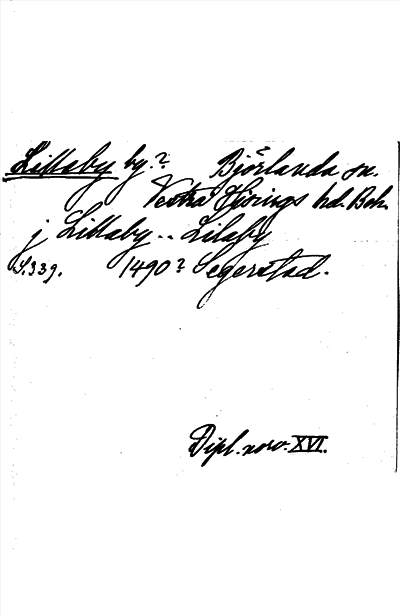 Lillaby by.? Björlanda sn.
Västra Hisings hd. Boh.
j Lillaby -- Lilaby
S.339. 1490? Segerstad.
Dipl. norv. XVI.